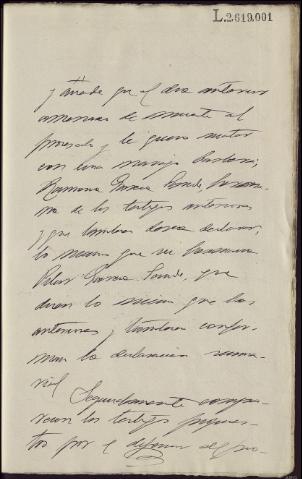 L.2619,001
y añade que el dia anterior
amenazas de muerte al
procesado y le quiso matar
con una navaja barbera;
Ramona Garcia Conde, herma-
na de los testigos anteriores
y que tambien desea declarar,
lo mismo que su hermana
Pilar Garcia Conde, que
dicen lo mismo que las
anteriores y tambien confir-
man la declaracion suma-
rial
Seguidamente compa-
recen los testigos propues-
tos por el defensor del pro-